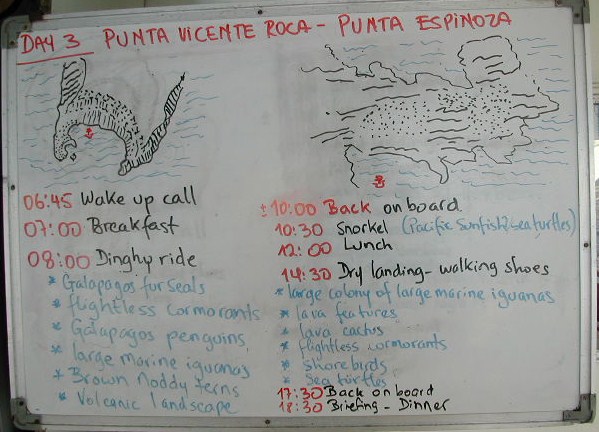 DAY 3 PUNTA VICENTE ROCA - PUNTA ESPINOZA
06:45 Wake up call
07:00 Breakfast
08:00 Dinghy ride
* Galapagos fur seals
* flightless cormorants
* Galapagos penguins
* large marine iguanas
* Brown Noddy terns
* Volcanic landscape
± 10:00 Back on board
10:30 Snorkel (Pacific Sunfish? sea turtles)
12:00 Lunch
14:30 Dry landing - walking shoes
* large colony of large marine iguanas
* lava features
* lava cactus
* flightless cormorants
* shore birds
* Sea turtles
17:30 Back on board
18:30 Briefing - Dinner